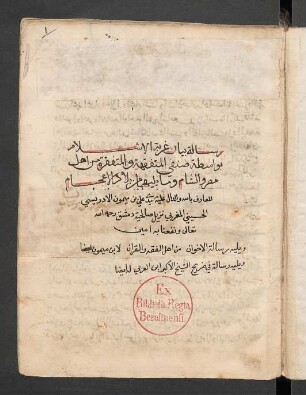 رسالة بيان غربة الاسلام
بواسطة صنفي المتفقهة والمتفقرة من اهل
مصر والشام وما يليهما من بلاد الاعجام
للعارف بالله والدال عليه سيدي علي بن ميمون الادريسي
الحسيني المغربي نزيل صالحية دمشق رحمه الله
تعالى ونفعنا به امين
ويليه رسالة الاخوان من اهل الفقه والقران لابن ميمون ايضا
ويليه رسالة في الشيخ الاكبر ابن العربي له ايضا
Ex
Biblioth. Regia
Berolinensi.